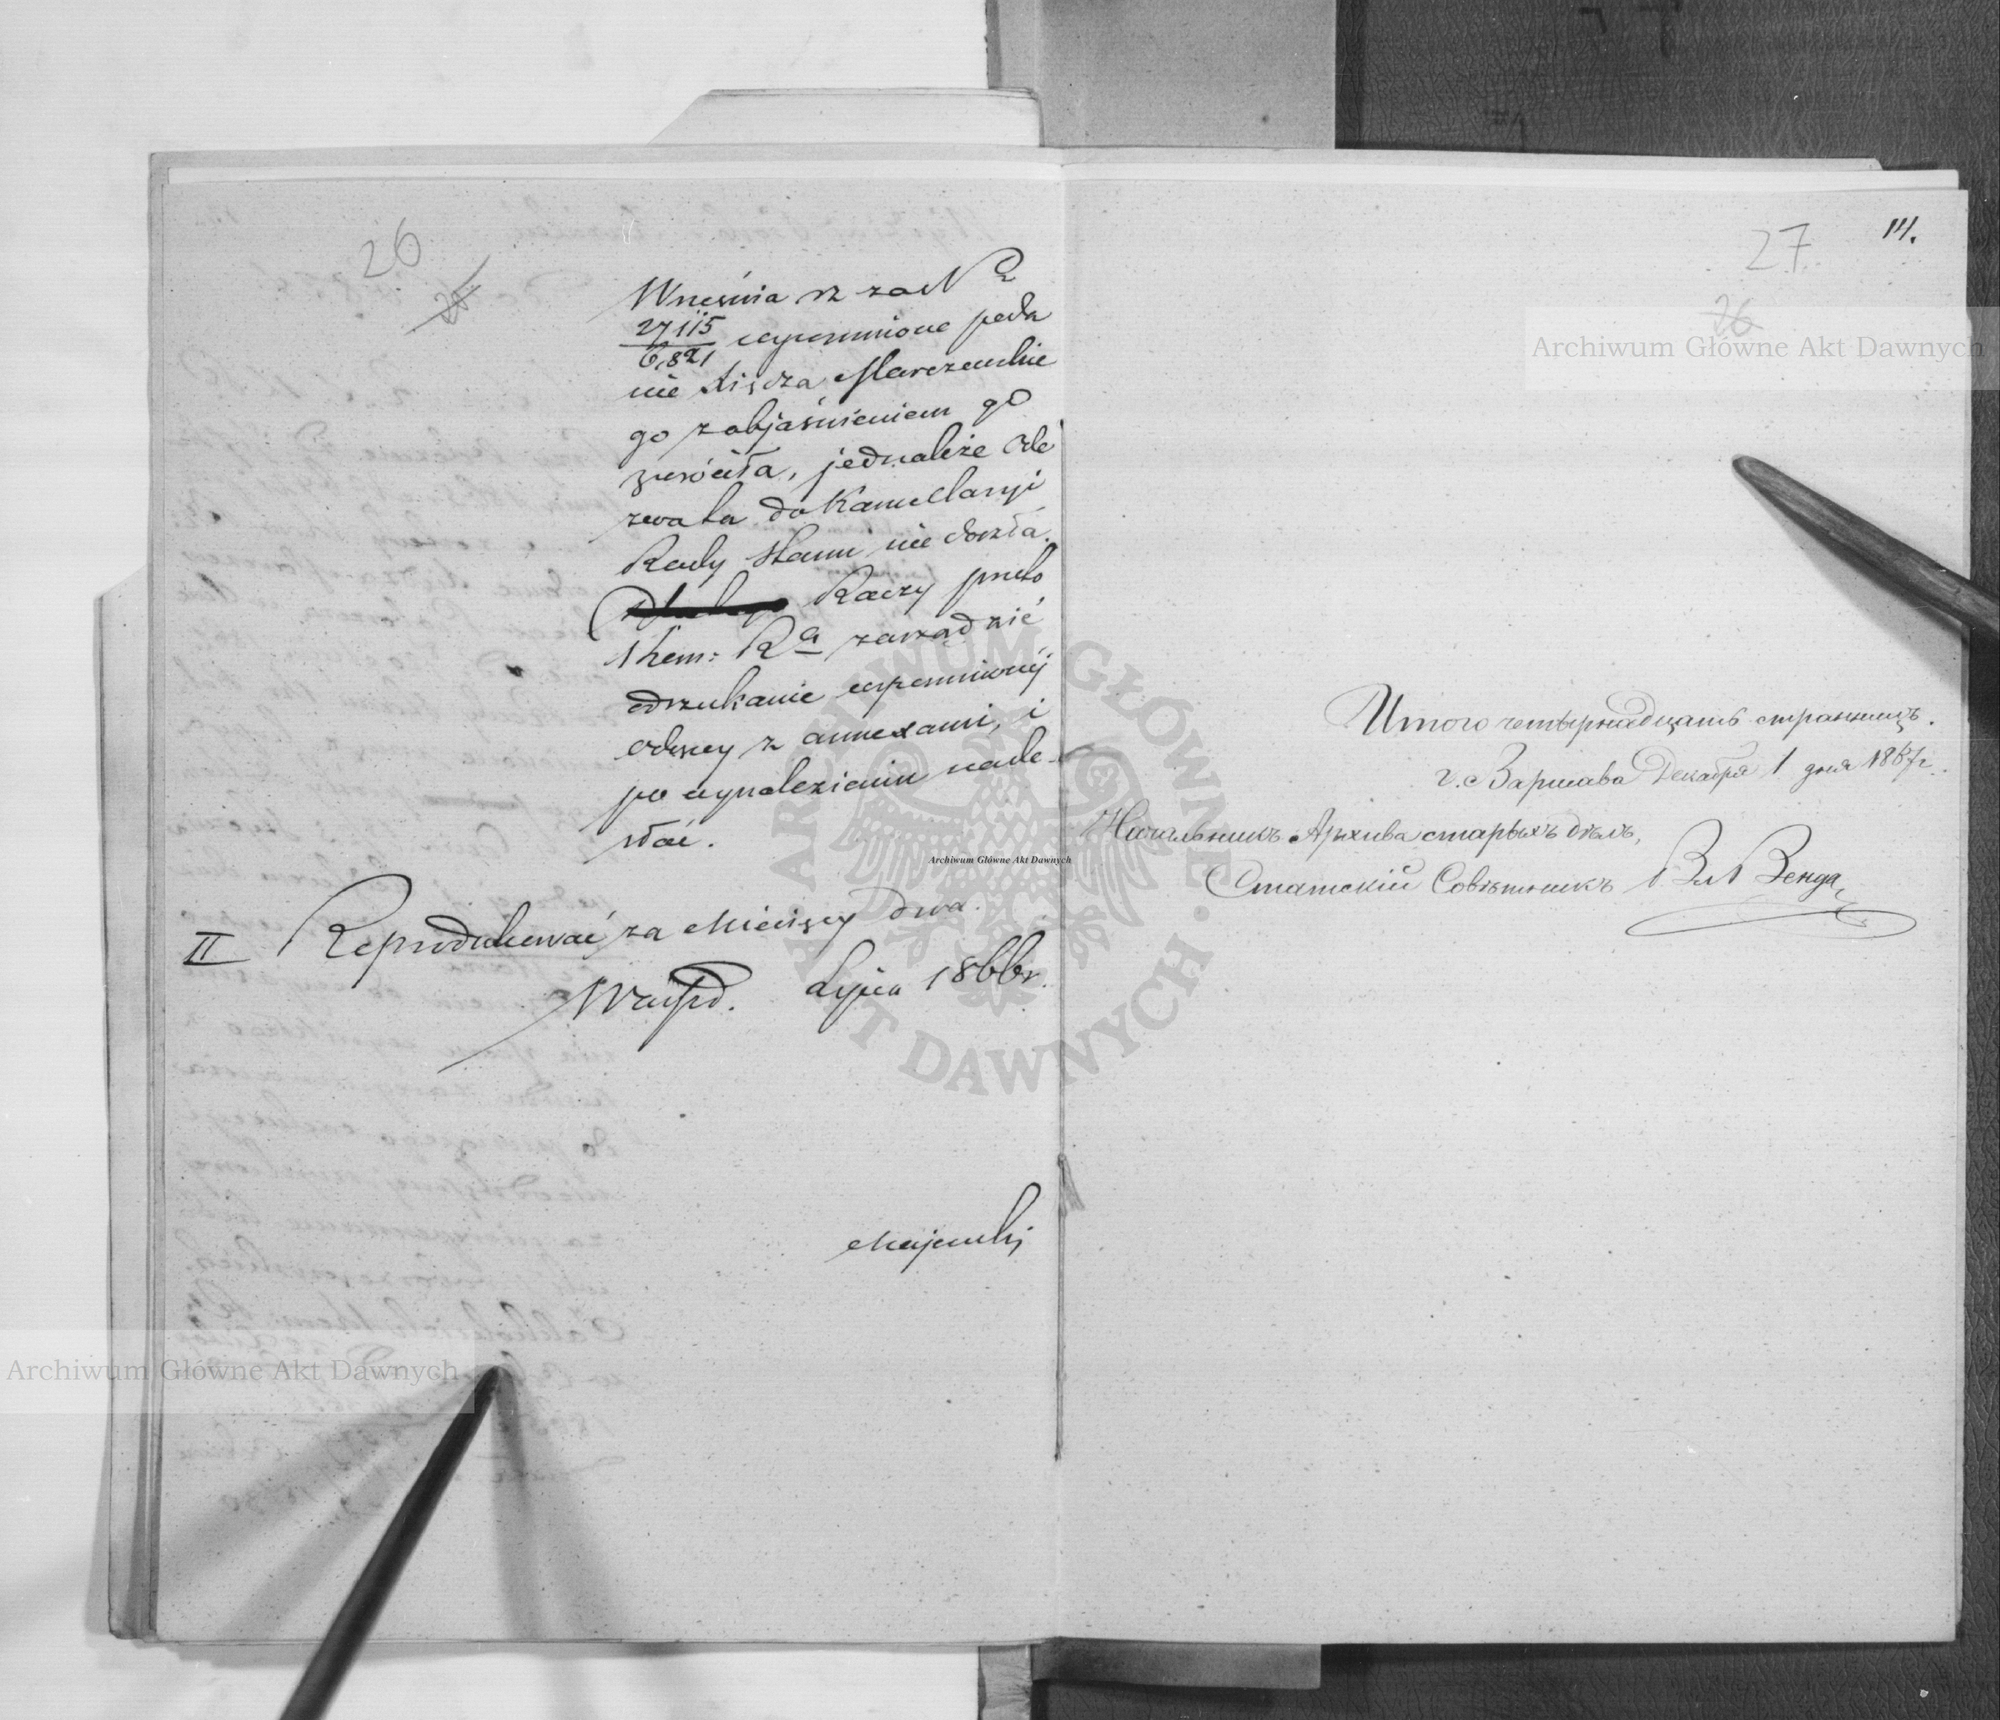 26
25
Września rz za No
27115
6,821
wspomnione poda
nie Xiędza Marczewskie
go z objaśnieniem go
zwróciła, jednakże Ode
zwa ta do Kancellaryi
Rady Stanu nie doszła.
Raczy przeto
Rem: Ra zarządzić
odszukanie wspomnionéj
odezwy z annexami, i
po wynalezieniu nade-
słać.
II Reprodukować za Miesięcy dwa
Lipca 1866 r.
Majewski
14.
27
26
Итого четырнадцать страницъ.
г. Варшава Декабря 1 дня 1867 г.
Начальникъ Архива старыхъ дѣлъ,
Статскій Совѣтникъ Вл Венда
Archiwum Główne Akt Dawnych
Archiwum Główne Akt Dawnych
Archiwum Główne Akt Dawnych
ARCHIWUM GŁÓWNE · AKT DAWNYCH ·